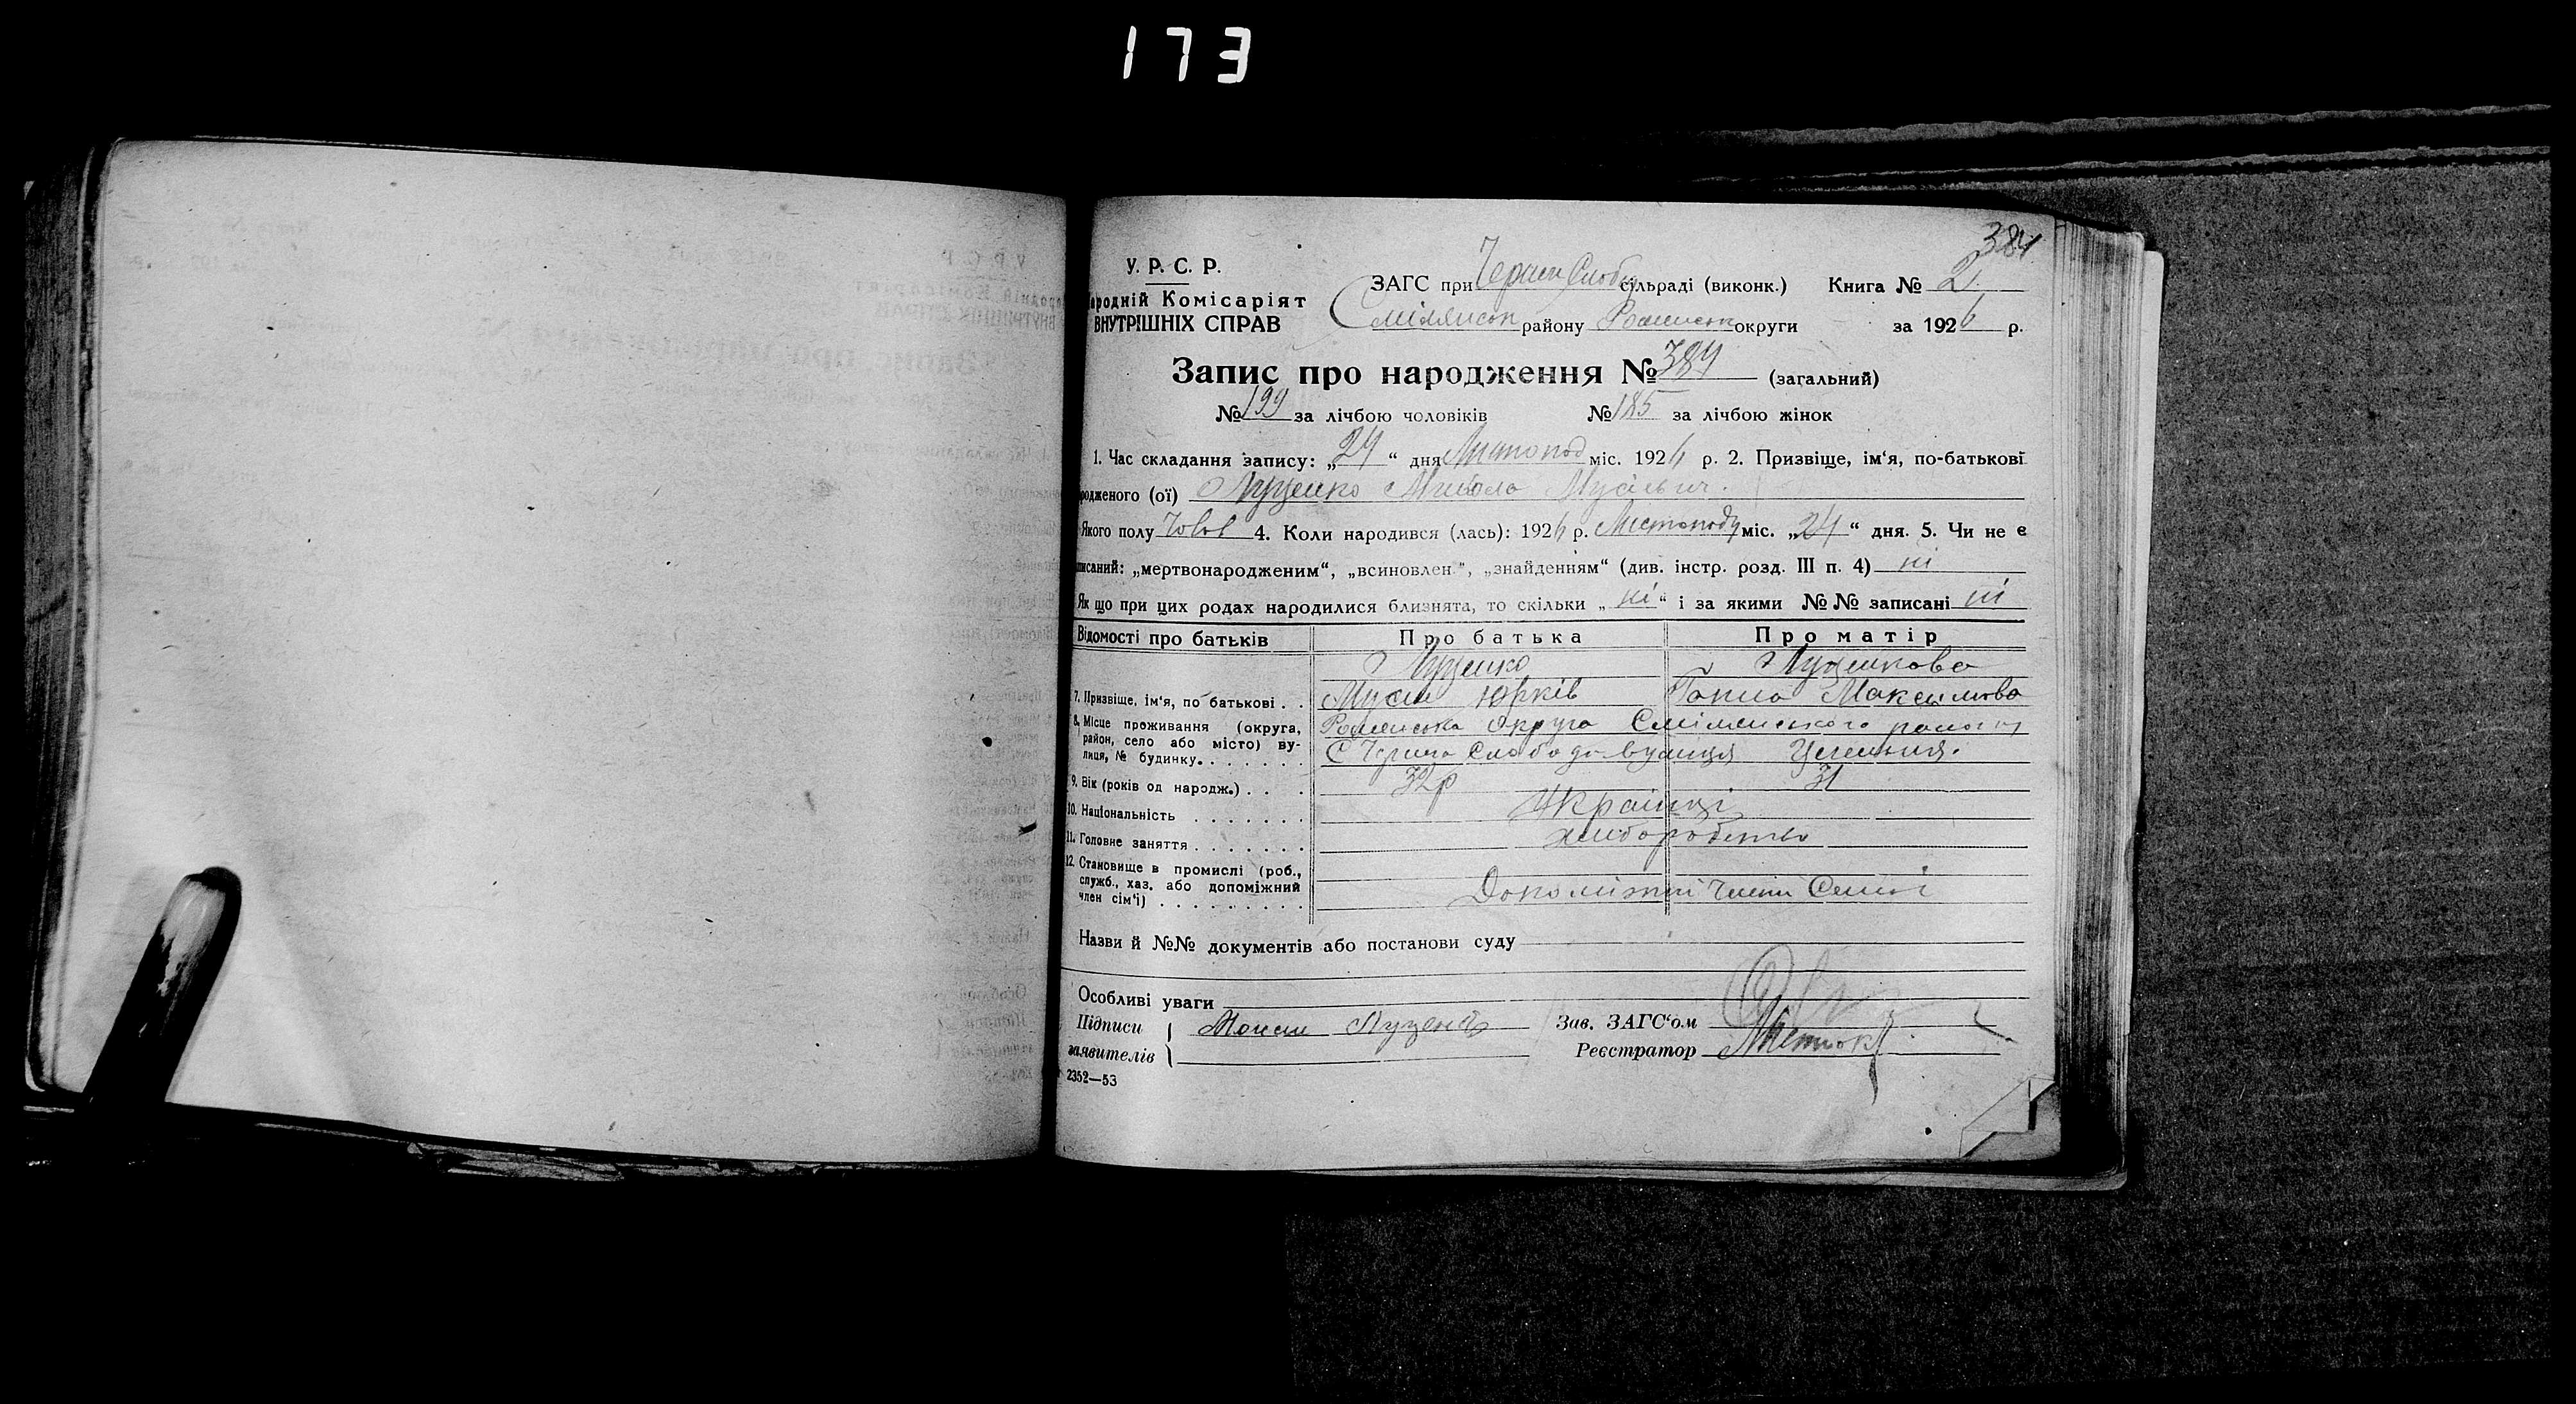 173
384
У. Р. С. Р.
ародній Комісаріят
ВНУТРІШНІХ СПРАВ
ЗАГС при Черно Слобід сільраді (виконк.) Книга № 2
Смілянськ району Роменськ округи за 1926 р.
Запис про народження № 384 (загальний)
№ 199 за лічбою чоловіків № 185 за лічбою жінок
1. Час складання запису: „24“ дня Листопод міс. 1926 р. 2. Призвіще, ім‘я, по-батькові
родженого (ої) Луценко Микола Мусієвич.
Якого полу Човов 4. Коли народився (лась): 1926 р. Листопода міс. „24“ дня. 5. Чи не є
писаний: „мертвонародженим“, „всиновлен.“, „знайденням“ (див. інстр. розд. III п. 4) ні
Як що при цих родах народилися близнята, то скільки „ні“ і за якими №№ записані ні
Відомості про батьків Про батька Про матір
Луценко Луценкова
7. Призвіще, ім‘я, по батькові . . Мусій Юрків Гапка Максимова
8. Місце проживання (округа, Роменська округа Смілянського району
район, село або місто) ву-
лиця, № будинку. . . . . . . С Чорна Слобода вулиця
9. Вік (років од народж.) . . . 32р 31
10. Національність . . . . . . . Українці
11. Головне заняття . . . . . . . хліборобство
12. Становище в промислі (роб.,
служб., хаз. або допоміжний Допоміжні члени Семії
член сім‘ї) . . . . . . . . .
Назви й №№ документів або постанови суду
Особливі уваги
Підписи Луценко Зав. ЗАГС‘ом
заявителів Реєстратор
2352—53